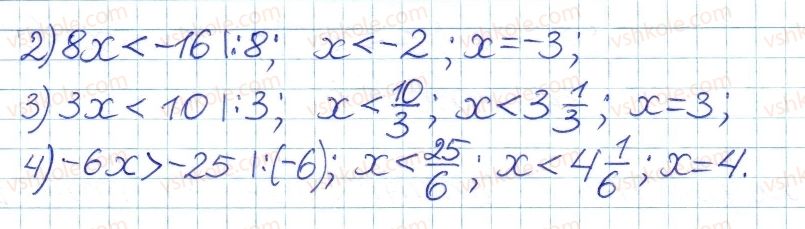 2) 8x < -16 |:8; x < -2; x = -3;
3) 3x < 10 |:3; x < 10/3; x < 3 1/3; x = 3;
4) -6x > -25 |:(-6); x < 25/6; x < 4 1/6; x = 4.